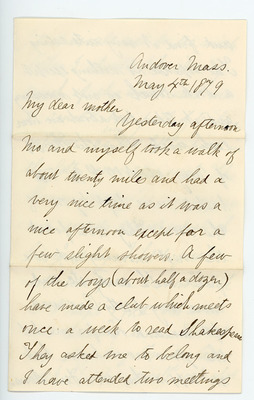 Andover Mass.
May 4th 1879
My dear mother
Yesterday afternoon
Mo and myself took a walk of
about twenty mile and had a
very nice time as it was a
nice afternoon except for a
few slight showers. A few
of the boys (about half a dozen)
have made a club which meets
once a week to read Shakespere
They asked me to belong and
I have attended two meetings